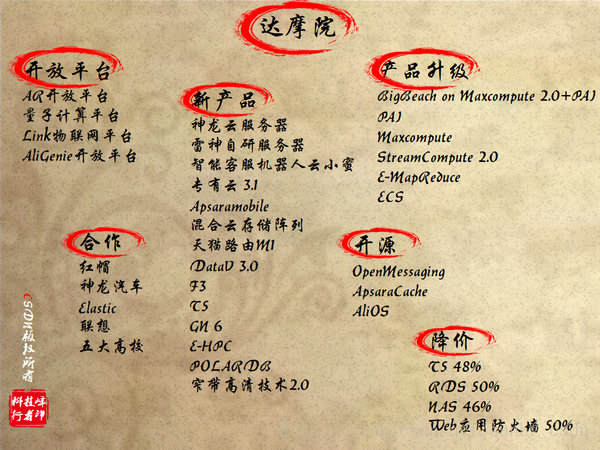 达摩院
开放平台
AR开放平台
量子计算平台
Link物联网平台
AliGenie开放平台
新产品
神龙云服务器
雷神自研服务器
智能客服机器人云小蜜
专有云 3.1
Apsaramobile
混合云存储阵列
天猫路由M1
DataV 3.0
F3
T5
GN 6
E-HPC
POLARDB
窄带高清技术2.0
产品升级
BigBeach on Maxcompute 2.0+PAI
PAI
Maxcompute
StreamCompute 2.0
E-MapReduce
ECS
合作
红帽
神龙汽车
Elastic
联想
五大高校
开源
OpenMessaging
ApsaraCache
AliOS
降价
T5 48%
RDS 50%
NAS 46%
Web应用防火墙 50%
CSDN版权所有
科技峰
行者印